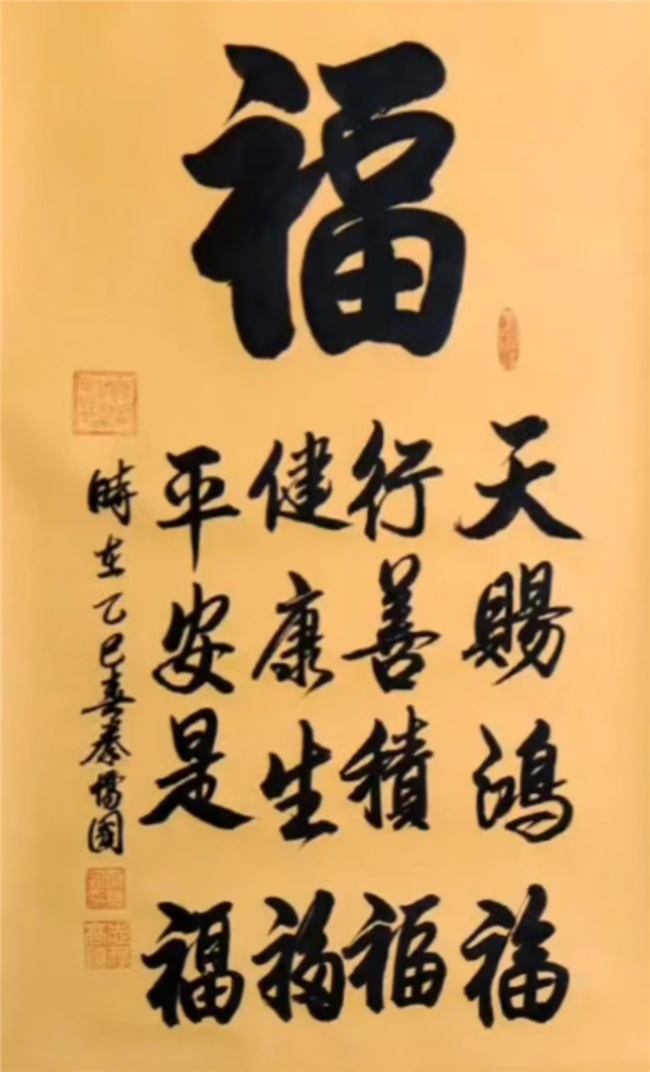 福
天賜鴻福
行善積福
健康生福
平安是福
時在乙巳春秦儒國